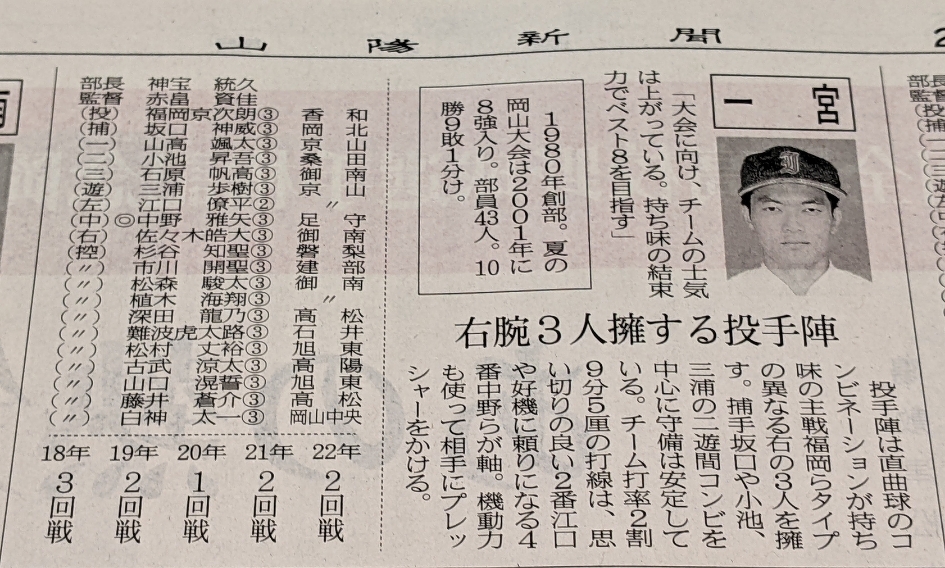 山陽新聞
一宮
「大会に向け、チームの士気
は上がっている。持ち味の結束
力でベスト8を目指す」
1980年創部。夏の
岡山大会は2001年に
8強入り。部員43人。10
勝9敗1分け。
右腕3人擁する投手陣
投手陣は直曲球のコ
ンビネーションが持ち
味の主戦福岡らタイプ
の異なる右の3人を擁
す。捕手坂口や小池、
三浦の二遊間コンビを
中心に守備は安定して
いる。チーム打率2割
9分5厘の打線は、思
い切りの良い2番江口
や好機に頼りになる4
番中野らが軸。機動力
も使って相手にプレッ
シャーをかける。
部長 神宝統久
監督 赤畠資佳
(投) 福岡京次朗③ 香和
(捕) 坂口神威③ 岡北
(一) 山高颯太③ 京山
(二) 小池昇吾③ 桑田
(三) 石原帆高③ 御南
(遊) 三浦歩樹③ 京山
(左) 江口僚平② 〃
(中) ◎中野雅矢③ 足守
(右) 佐々木皓大③ 御南
(控) 杉谷知聖③ 磐梨
(〃) 市川開聖③ 建部
(〃) 松森駿太③ 御南
(〃) 植木海翔③ 〃
(〃) 深田龍乃③ 高松
(〃) 難波虎太路③ 石井
(〃) 松村丈裕③ 旭東
(〃) 古武涼太③ 高陽
(〃) 山口滉誓③ 旭東
(〃) 藤井蒼介③ 高松
(〃) 白神太一③ 岡山中央
18年 3回戦
19年 2回戦
20年 1回戦
21年 2回戦
22年 2回戦